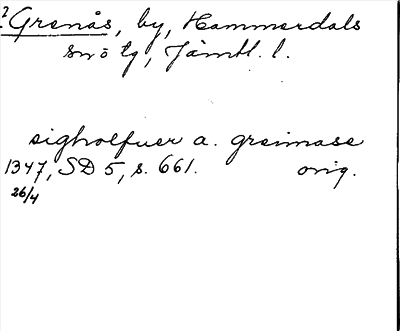 ? Grenås, by, Hammerdals
sn o tg, Jämtl. l.
sigholfuer a. greimase
1347, SD 5, s. 661. orig.
26/4